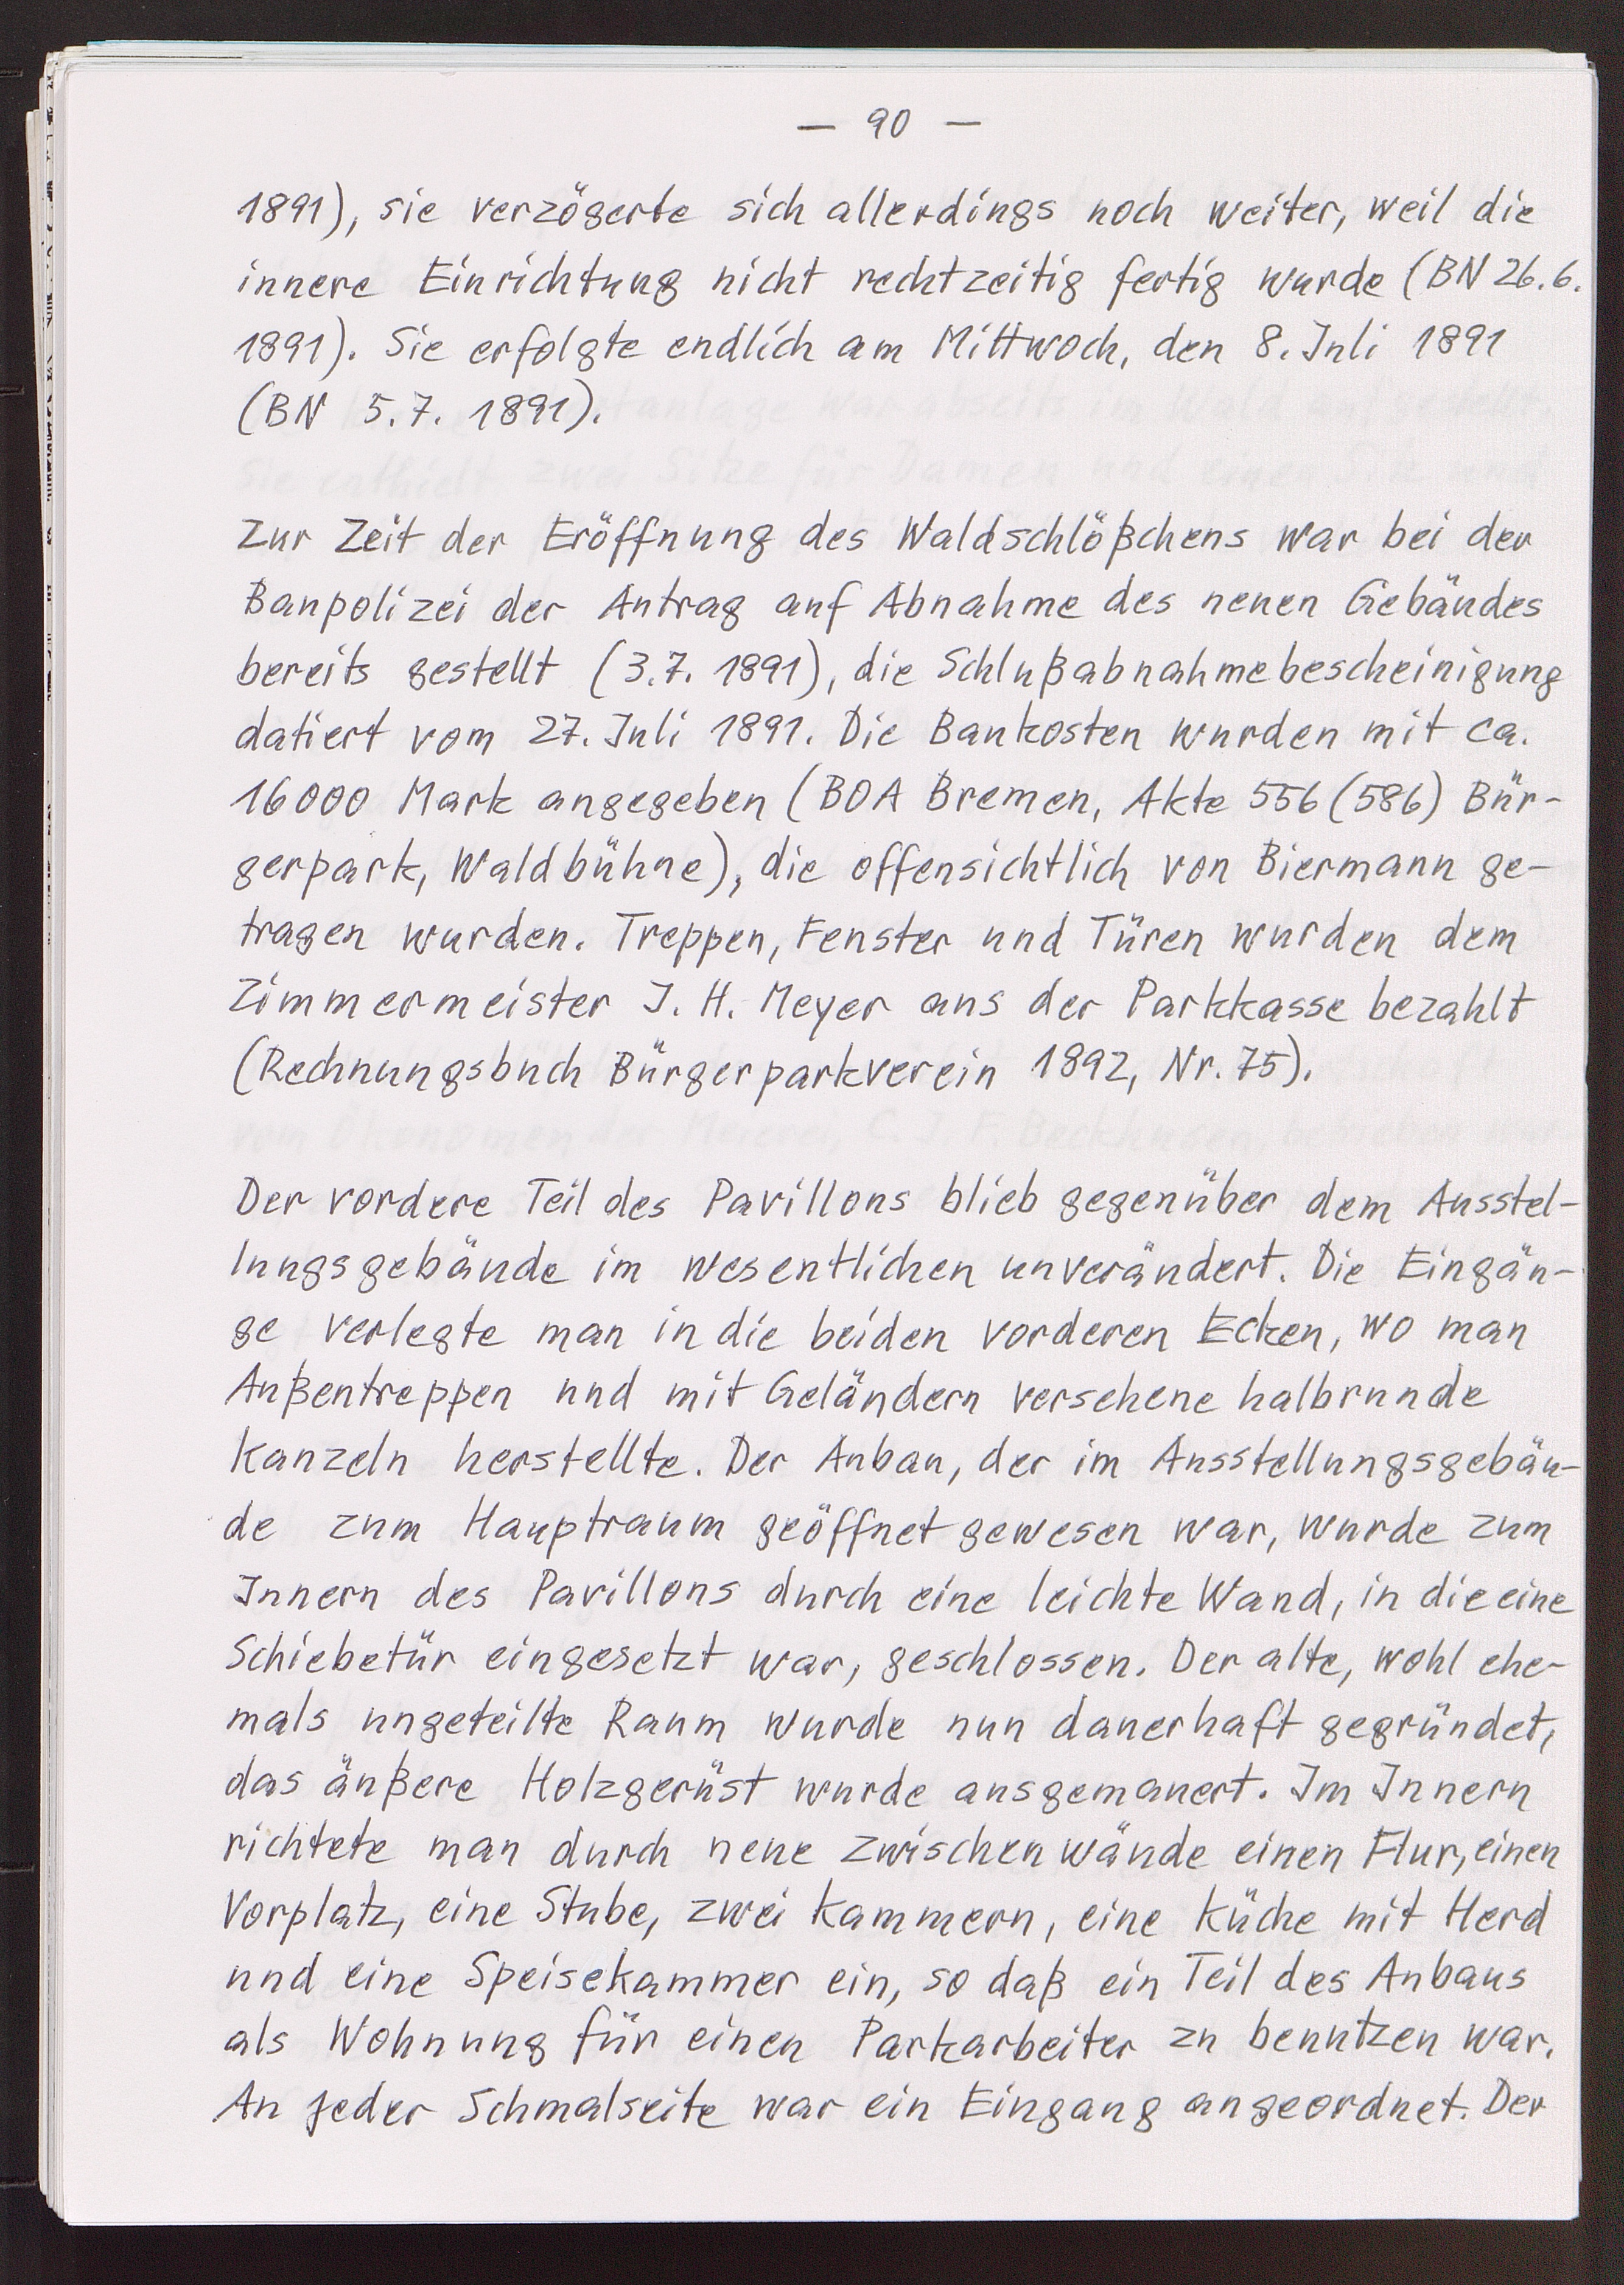 — 90 —
1891), sie verzögerte sich allerdings noch weiter, weil die
innere Einrichtung nicht rechtzeitig fertig wurde (BN 26.6.
1891). Sie erfolgte endlich am Mittwoch, den 8. Juli 1891
(BN 5.7. 1891).
Zur Zeit der Eröffnung des Waldschlößchens war bei der
Baupolizei der Antrag auf Abnahme des neuen Gebäudes
bereits gestellt (3.7. 1891), die Schlußabnahmebescheinigung
datiert vom 27. Juli 1891. Die Baukosten wurden mit ca.
16000 Mark angegeben (BOA Bremen, Akte 556 (586) Bür-
gerpark, Waldbühne), die offensichtlich von Biermann ge-
tragen wurden. Treppen, Fenster und Türen wurden dem
Zimmermeister J. H. Meyer aus der Parkkasse bezahlt
(Rechnungsbuch Bürgerparkverein 1892, Nr. 75).
Der vordere Teil des Pavillons blieb gegenüber dem Ausstel-
lungsgebäude im wesentlichen unverändert. Die Eingän-
ge verlegte man in die beiden vorderen Ecken, wo man
Außentreppen und mit Geländern versehene halbrunde
Kanzeln herstellte. Der Anbau, der im Ausstellungsgebäu-
de zum Hauptraum geöffnet gewesen war, wurde zum
Innern des Pavillons durch eine leichte Wand, in die eine
Schiebetür eingesetzt war, geschlossen. Der alte, wohl ehe-
mals ungeteilte Raum wurde nun dauerhaft gegründet,
das äußere Holzgerüst wurde ausgemauert. Im Innern
richtete man durch neue Zwischenwände einen Flur, einen
Vorplatz, eine Stube, zwei Kammern, eine Küche mit Herd
und eine Speisekammer ein, so daß ein Teil des Anbaus
als Wohnung für einen Parkarbeiter zu benutzen war.
An jeder Schmalseite war ein Eingang angeordnet. Der